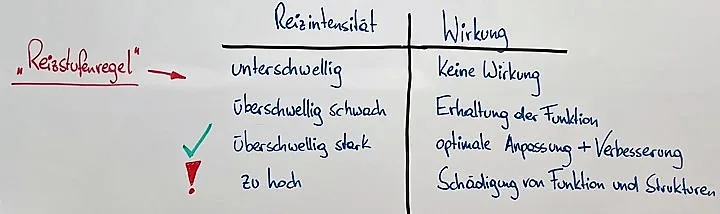 Reizintensität Wirkung
„Reizstufenregel" unterschwellig Keine Wirkung
überschwellig schwach Erhaltung der Funktion
überschwellig stark optimale Anpassung + Verbesserung
! zu hoch Schädigung von Funktion und Strukturen